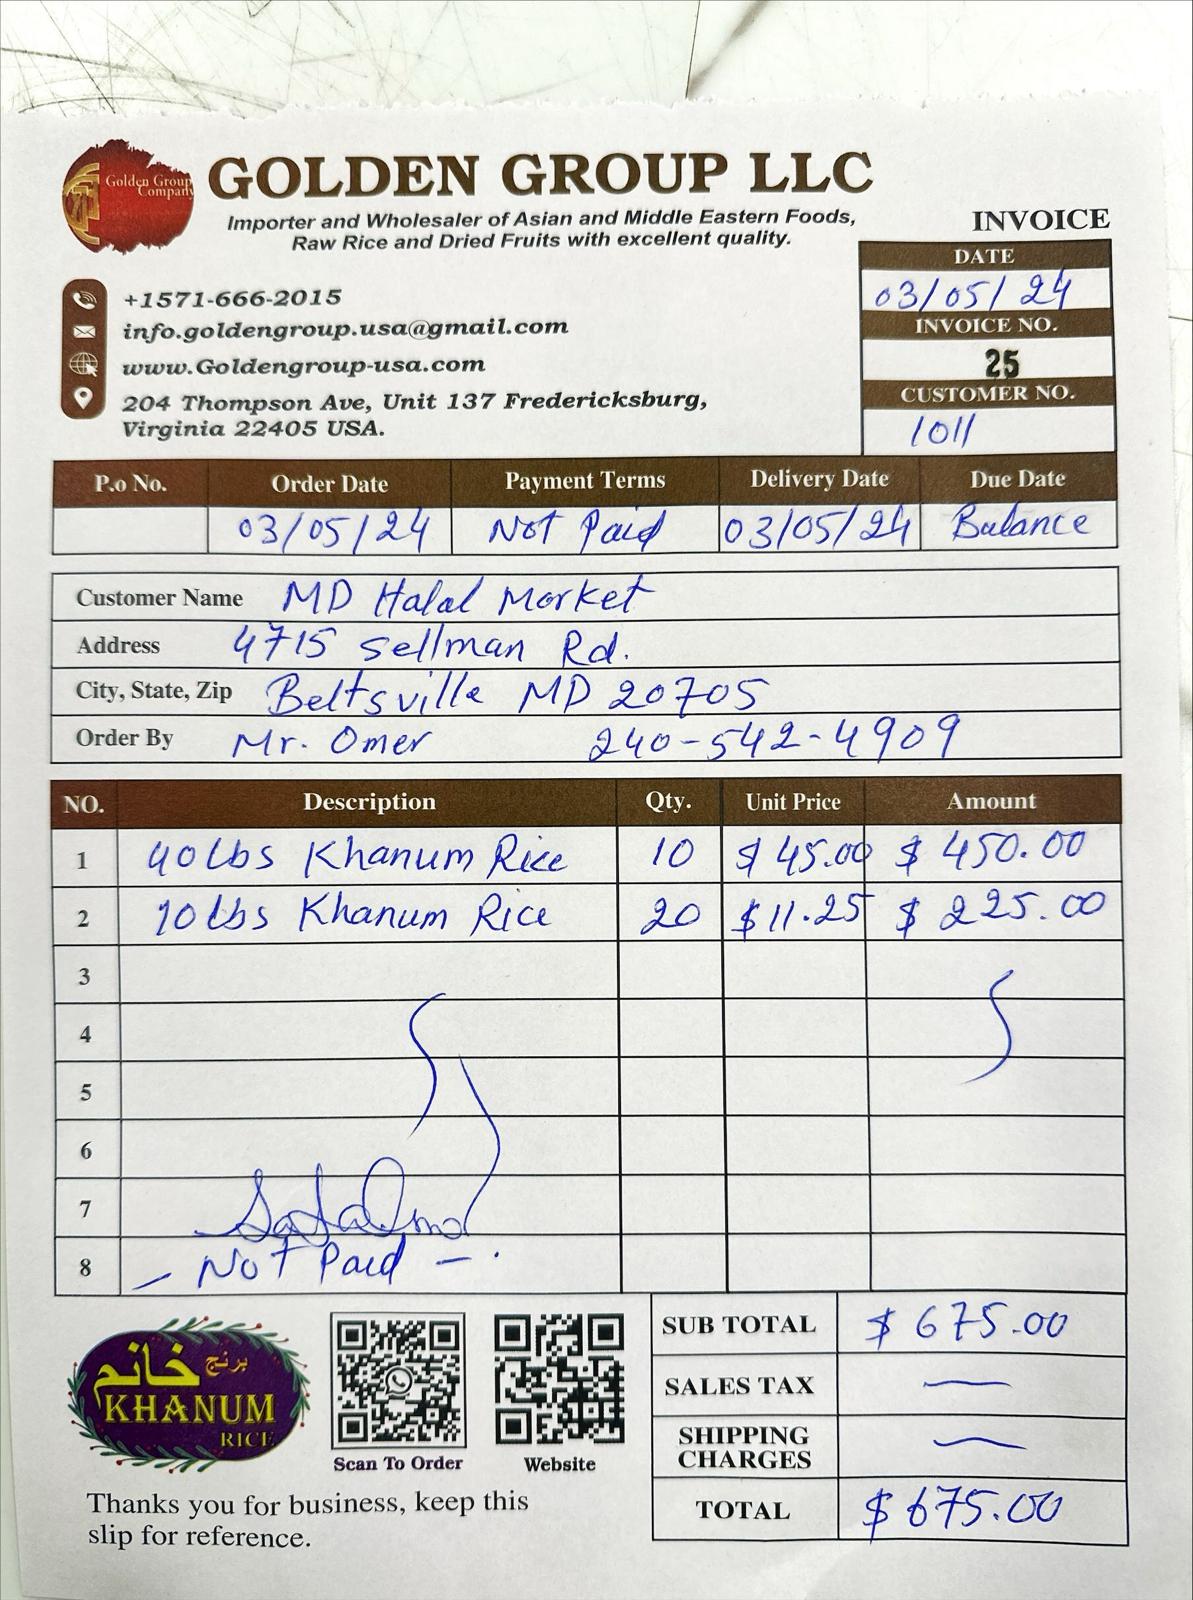 Golden Group
Company
GOLDEN GROUP LLC
Importer and Wholesaler of Asian and Middle Eastern Foods,
Raw Rice and Dried Fruits with excellent quality.
INVOICE
DATE
03/05/24
INVOICE NO.
25
CUSTOMER NO.
1011
+1571-666-2015
info.goldengroup.usa@gmail.com
www.Goldengroup-usa.com
204 Thompson Ave, Unit 137 Fredericksburg,
Virginia 22405 USA.
P.o No. Order Date Payment Terms Delivery Date Due Date
03/05/24 Not Paid 03/05/24 Balance
Customer Name MD Halal Market
Address 4715 Sellman Rd.
City, State, Zip Beltsville MD 20705
Order By Mr. Omer 240-542-4909
NO. Description Qty. Unit Price Amount
1 40 lbs Khanum Rice 10 $ 45.00 $ 450.00
2 10 lbs Khanum Rice 20 $ 11.25 $ 225.00
3
4
5
6
7
8 – Not Paid – .
SUB TOTAL $ 675.00
SALES TAX —
SHIPPING
CHARGES —
TOTAL $ 675.00
برنج خانم
KHANUM
RICE
Scan To Order
Website
Thanks you for business, keep this
slip for reference.